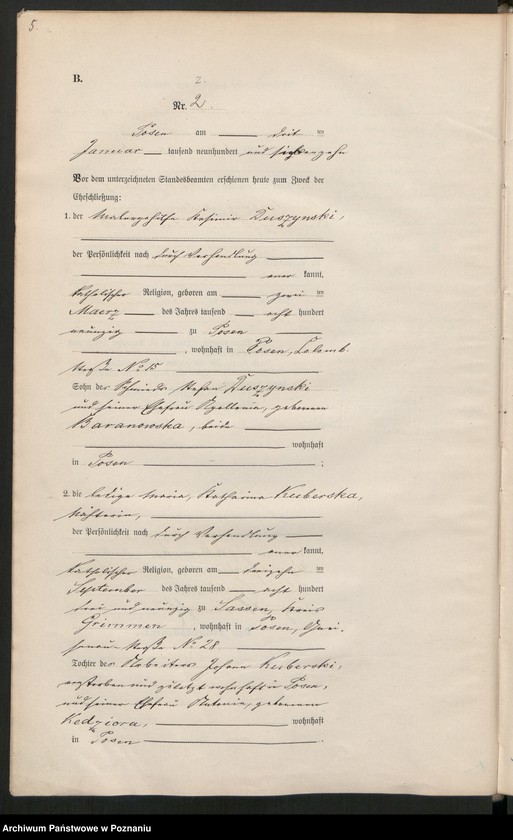 5.
B.
2.
Nr. 2.
Posen am drei ten
Januar tausend neunhundert und siebenzehn
Vor dem unterzeichneten Standesbeamten erschienen heute zum Zweck der
Eheschließung:
1. der Malergehilfe Kasimir Duszynski,
der Persönlichkeit nach durch Verhandlung
aner kannt,
katholischer Religion, geboren am zwei ten
Maerz des Jahres tausend acht hundert
neunzig zu Posen
, wohnhaft in Posen, Colomb-
straße No 15
Sohn des Schmieds Stefan Duszynski
und seiner Ehefrau Apollonia, geborenen
Baranowska, beide
wohnhaft
in Posen ;
2. die ledige Maria, Katharina Kuberska,
Nähterin,
der Persönlichkeit nach durch Verhandlung
aner kannt,
katholischer Religion, geboren am dreizehn ten
September des Jahres tausend acht hundert
drei und neunzig zu Sassen, Kreis
Grimmen , wohnhaft in Posen,
straße No 28.
Tochter des Arbeiters Johann Kuberski,
verstorben und zuletzt wohnhaft in Posen,
und seiner Ehefrau Antonie, geborenen
Kedziora, wohnhaft
in Posen .
Archiwum Państwowe w Poznaniu